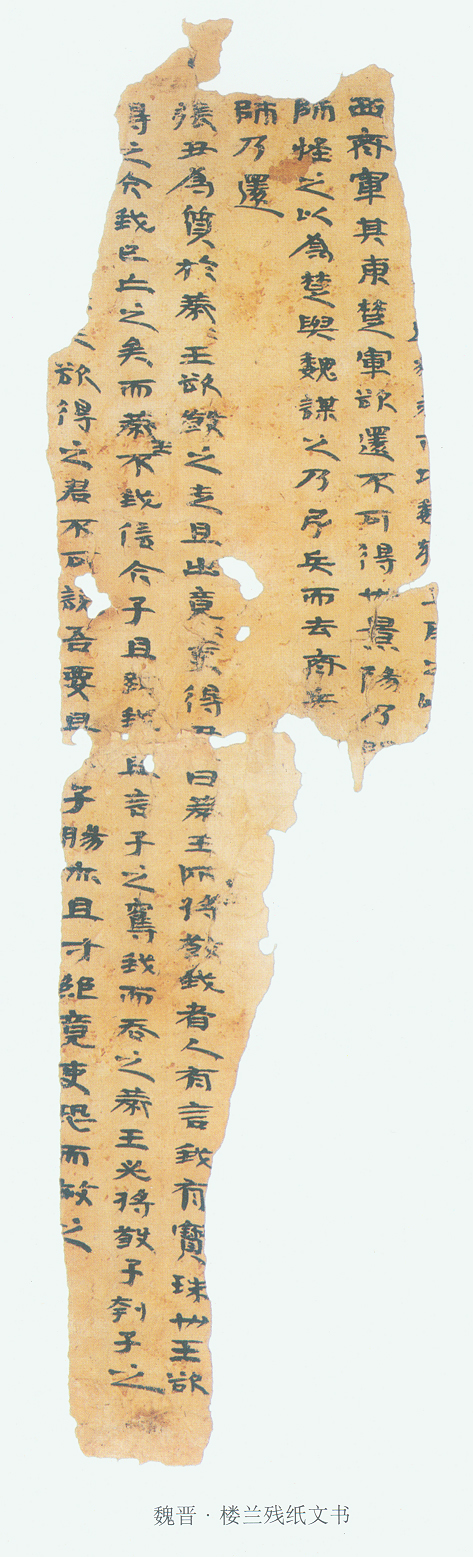 西齊軍其東楚軍欲還不可得也景陽乃開
師怪之以為楚與魏謀之乃引兵而去齊兵
師乃還
張丑為質於燕王欲殺之走且出竟吏得丑曰燕王所將殺我者人有言我有寶珠也王欲
得之今我已亡之矣而燕王不我信今子且致我我且言子之奪我而吞之燕王必將殺子刳子之
欲得之君不可說吾要且子腸亦且寸絕竟吏恐而赦之
魏晋·楼兰残纸文书